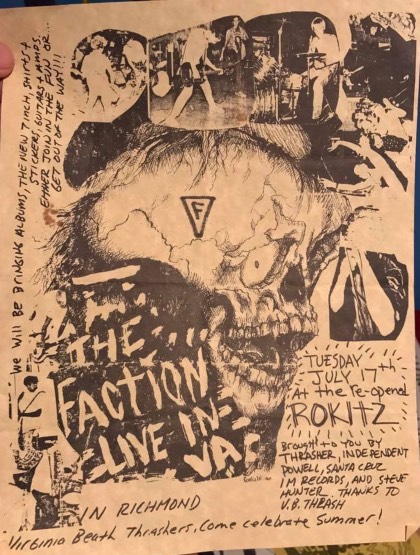 We will be bringing albums, the new 7 inch, shirts &
stickers, guitars & amps.
Either join in the fun or...
get out of the way!!!
F
THE
FACTION
LIVE IN
VA
TUESDAY
JULY 17th
At the re-opened
ROKITZ
Brought to you by
THRASHER, INDEPENDENT
POWELL, SANTA CRUZ
IM RECORDS, AND STEVE
HUNTER. THANKS TO
V.B. THRASH
IN RICHMOND
Virginia Beath Thrashers, Come celebrate Summer!